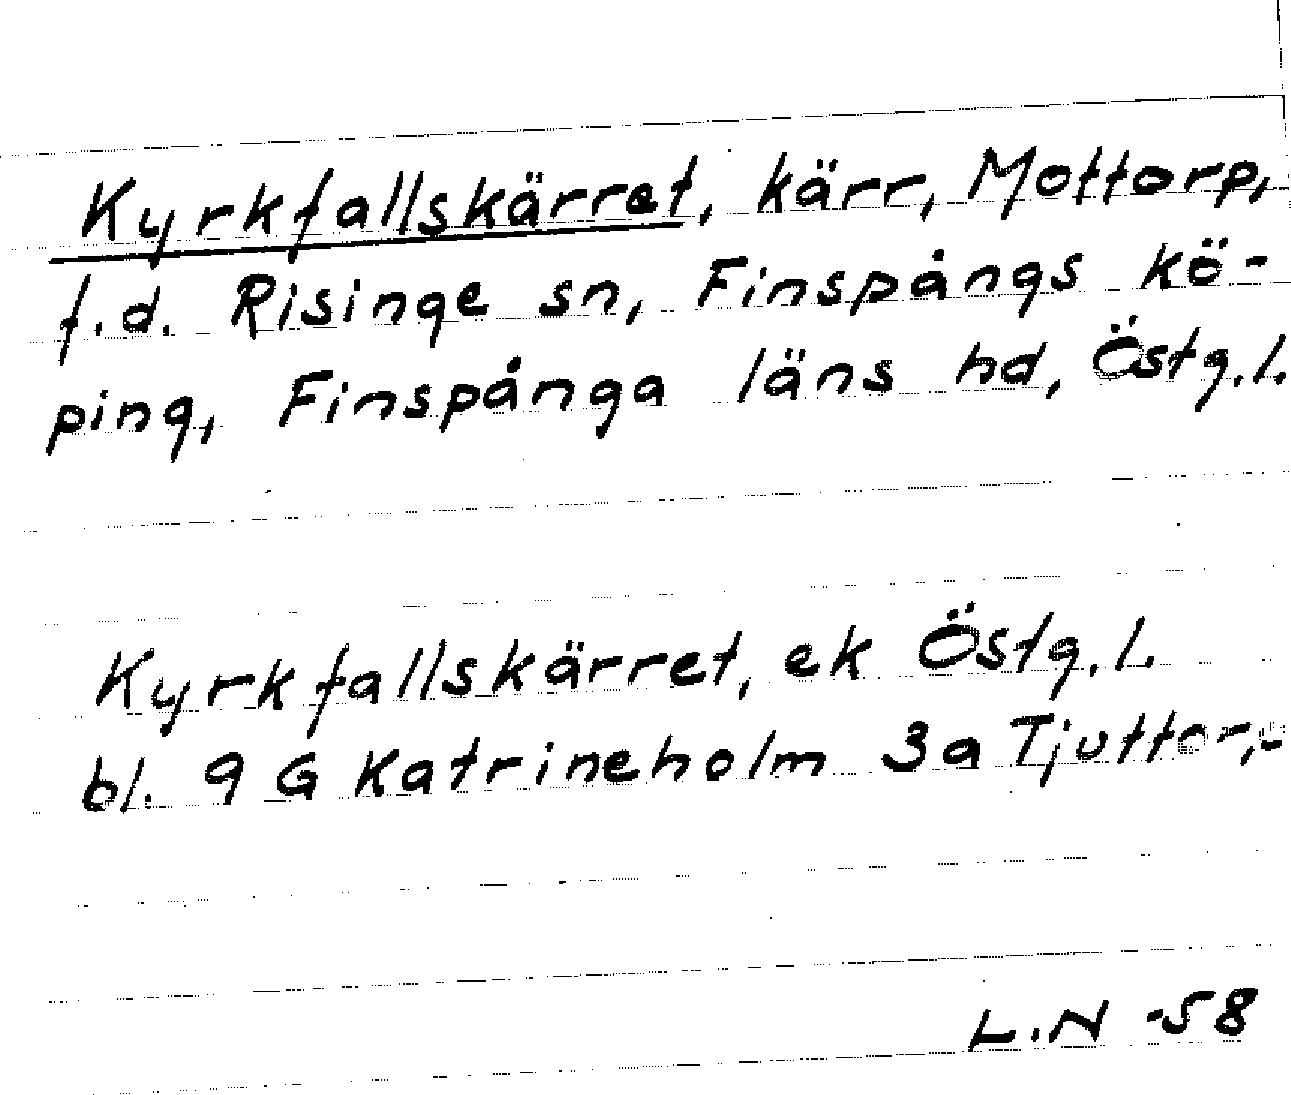 Kyrkfallskärret, kärr, Mottorp,
f.d. Risinge sn, Finspångs kö-
ping, Finspånga läns hd, Östg.l.
Kyrkfallskärret, ek Östg.l.
bl. 9 G Katrineholm 3a
L.N -58